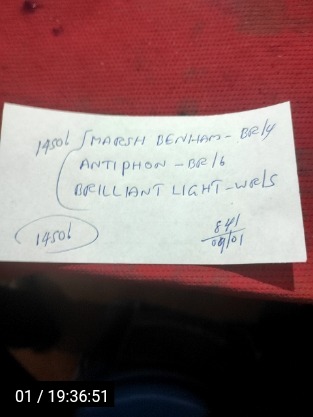 1450b MARSH BENHAM - BR/4
ANTIPHON - BR/6
BRILLIANT LIGHT - WR/5
1450b
841
09/01
01 / 19:36:51